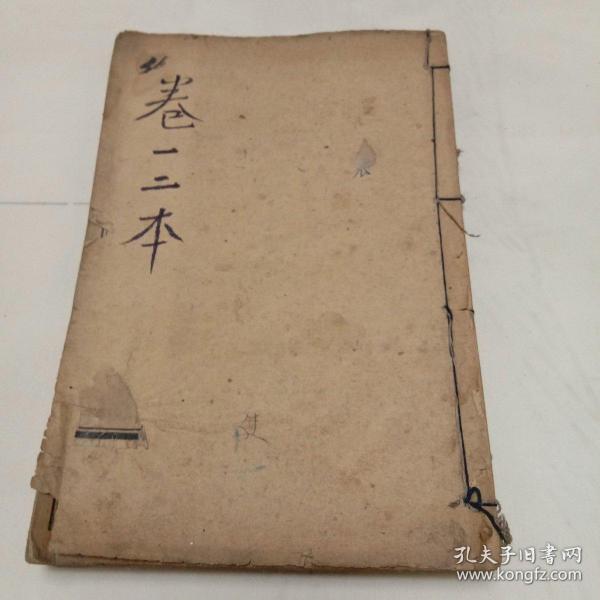 卷一二本
使
孔夫子旧書网
www.kongfz.com